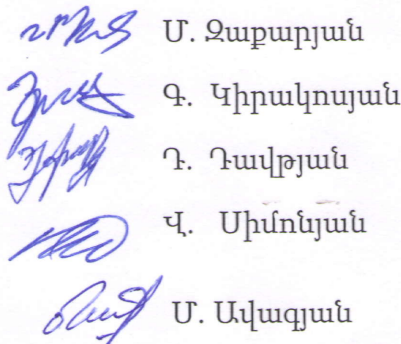 Մ. Զաքարյան
Գ. Կիրակոսյան
Դ. Դավթյան
Վ. Սիմոնյան
Մ. Ավագյան